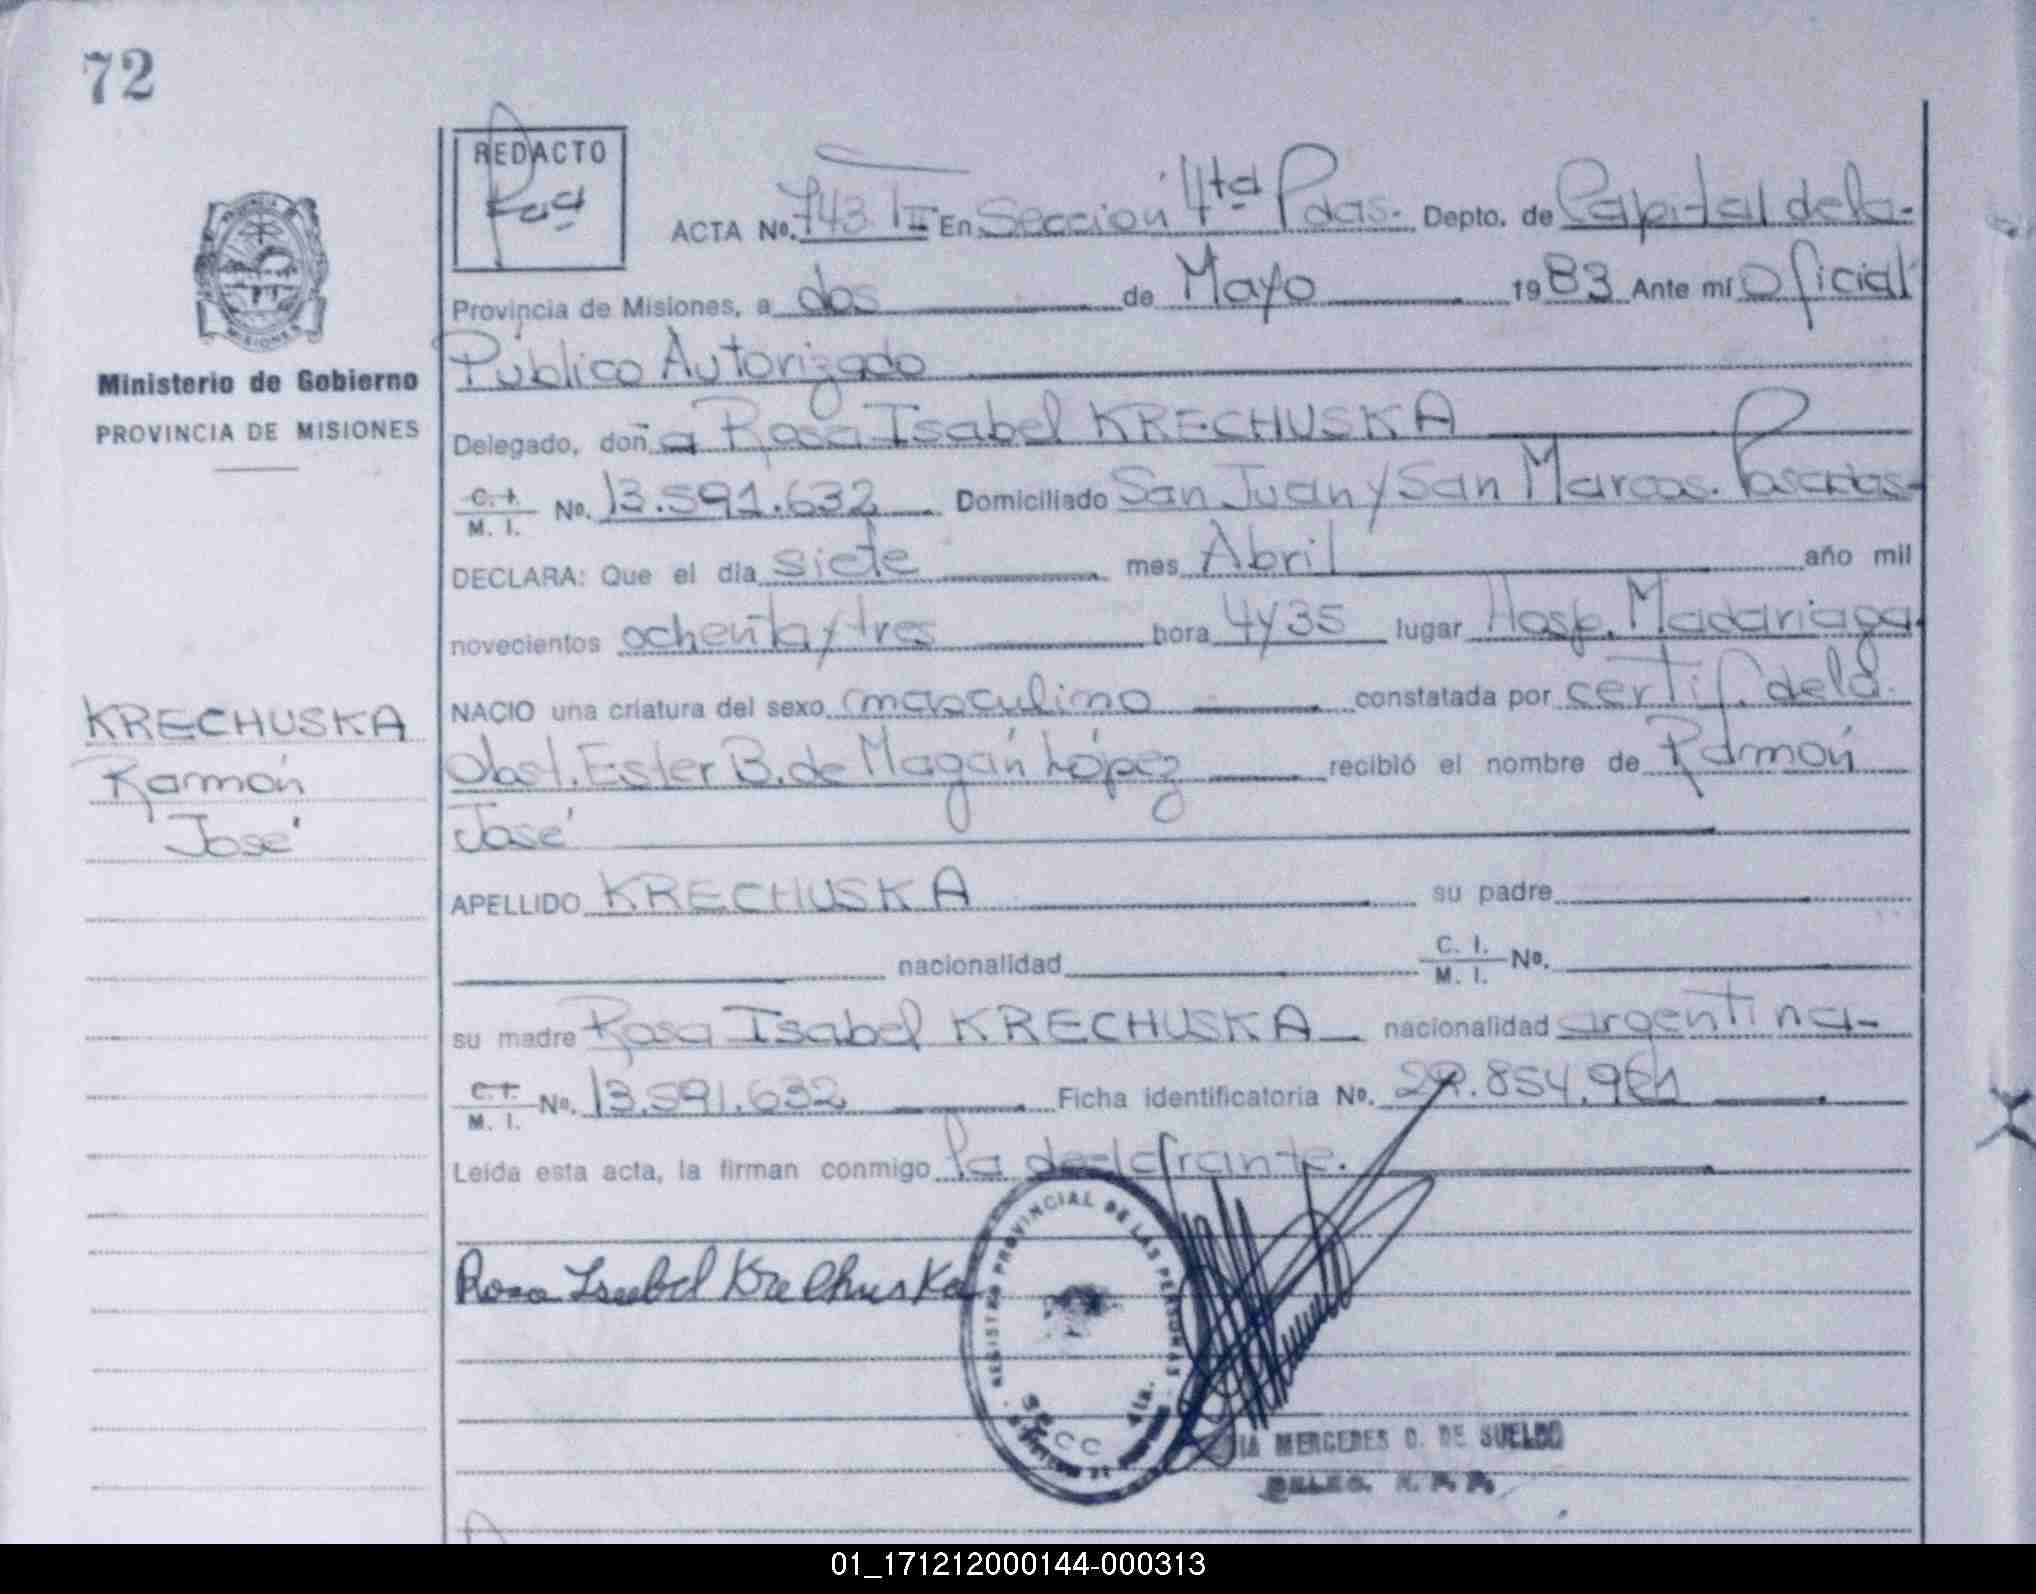 72
REDACTO
ACTA No. 743 TII En Sección 4ta Pdas. Depto. de Capital de la
Provincia de Misiones, a dos de Mayo 1983 Ante mí Oficial
Público Autorizado
Ministerio de Gobierno
PROVINCIA DE MISIONES
Delegado, doña Rosa Isabel KRECHUSKA
C. I. M. I. No. 13.591.632 Domiciliado San Juan y San Marcos. Posadas
DECLARA: Que el día siete mes Abril año mil
novecientos ochenta y tres hora 4 y 35 lugar Hosp. Madariaga
NACIO una criatura del sexo masculino constatada por certif. de la
Obst. Ester B. de Magán López recibió el nombre de Ramón
José
KRECHUSKA
Ramón
José
APELLIDO KRECHUSKA su padre
nacionalidad C. I. M. I. No.
su madre Rosa Isabel KRECHUSKA nacionalidad argentina
C. I. M. I. No. 13.591.632 Ficha identificatoria No. 29.854.961
Leída esta acta, la firman conmigo la declarante.
Rosa Isabel Krechuska
REGISTRO PROVINCIAL DE LAS PERSONAS
SECC 4ta.
MERCEDES O. DE SUELDO
01_171212000144-000313